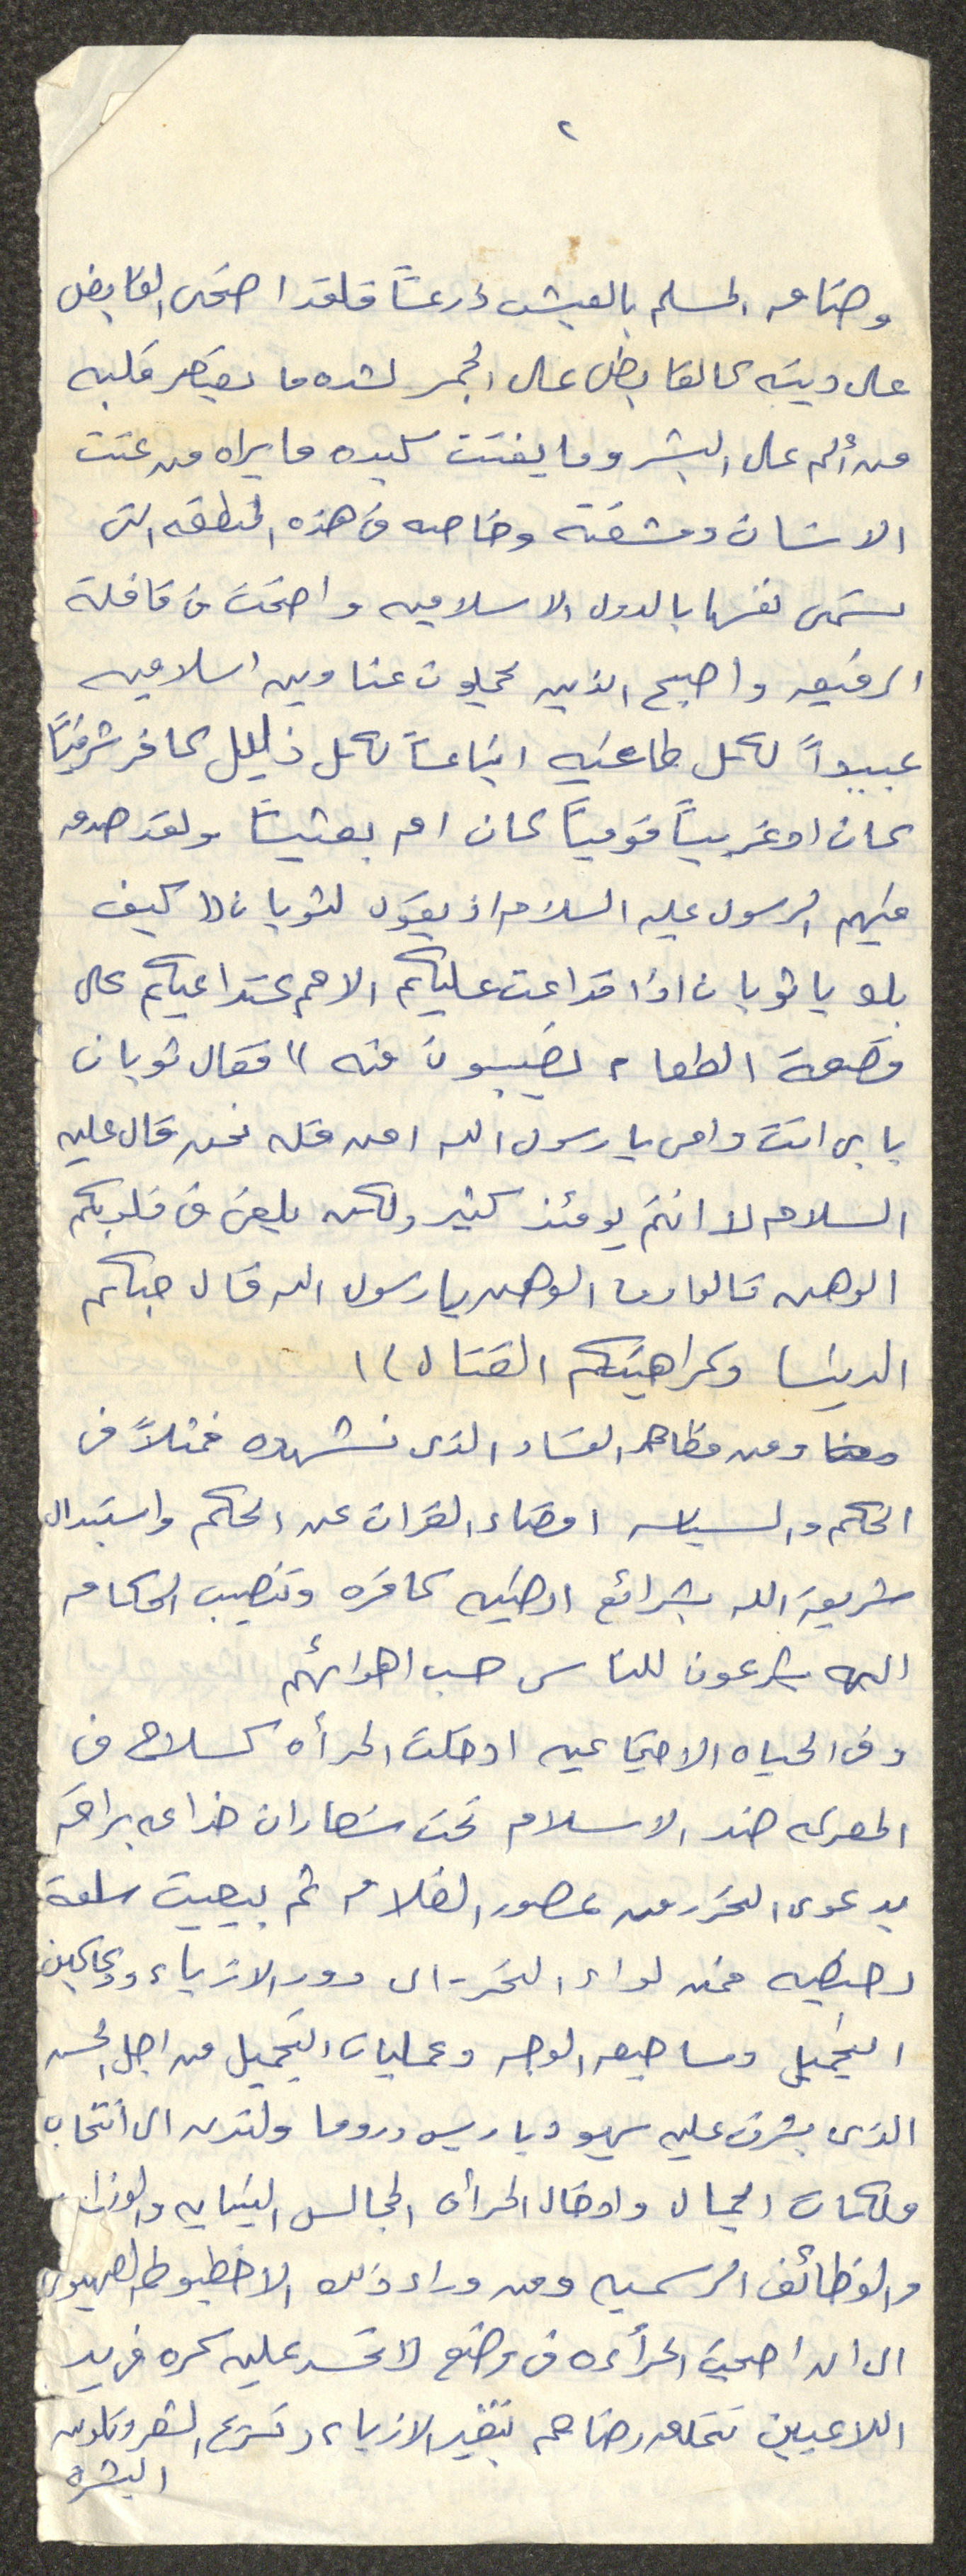 ٢
وضاق المسلم بالعيش ذرعاً فلقد اضحى القابض
على دينه كالقابض على الجمر لشده ما يعتصر قلبه
من ألم على البشر وما يفتت كبده ما يراه من عنت
الانسان ومشقته وخاصه في هذه المنطقه التي
تسمى نفسها بالدول الاسلاميه واضحت في قافلة
الرقيق واصبح الذين يحملون عناوين اسلاميه
عبيداً لكل طاغيه اتباعاً لكل ذليل كافر شرقياً
كان او غربياً قومياً كان ام بعثياً ولقد صدق
فيهم الرسول عليه السلام اذ يقول لثوبان (( كيف
بك يا ثوبان اذا تداعت عليكم الامم كتداعيكم على
قصعة الطعام تصيبون منه )) فقال ثوبان
بابي انت وامي يا رسول الله امن قله نحن قال عليه
السلام لا انتم يومئذ كثير ولكن يلقى في قلوبكم
الوهن قالوا وما الوهن يا رسول الله قال حبكم
الدنيا وكراهيتكم القتال ))
ومن مظاهر الفساد الذي نشهده فمثلاً في
الحكم والسياسه اقصاء القران عن الحكم واستبدال
شريعة الله بشرائع ارضيه كافره وتنصيب الحكام
الهه يشرعون للناس حسب اهوائهم
وفي الحياه الاجتماعيه ادخلت المرأه كسلاح في
المعركه ضد الاسلام تحت شعارات خداعه براقه
بدعوى التحرر من عصور الظلام ثم بيعت سلعة
رخيصه فمن لواء التحرر الى دور الازياء ودكاكين
التجميل ومساحيق الوجه وعمليات التجميل من اجل الحسن
الذي يشرف عليه يهود باريس وروما ولندن الى انتخاب
ملكات الجمال وادخال المرأه المجالس النيابيه والوزارات
والوظائف الرسميه ومن وراء ذلك الاخطبوط الصهيوني
الى ان اصبحت المرأه في وضع لا تحسد عليه كره في يد
اللاعبين تتحكم رضاهم بتغير الازياء وتسريح الشعر وتلوين
البشره